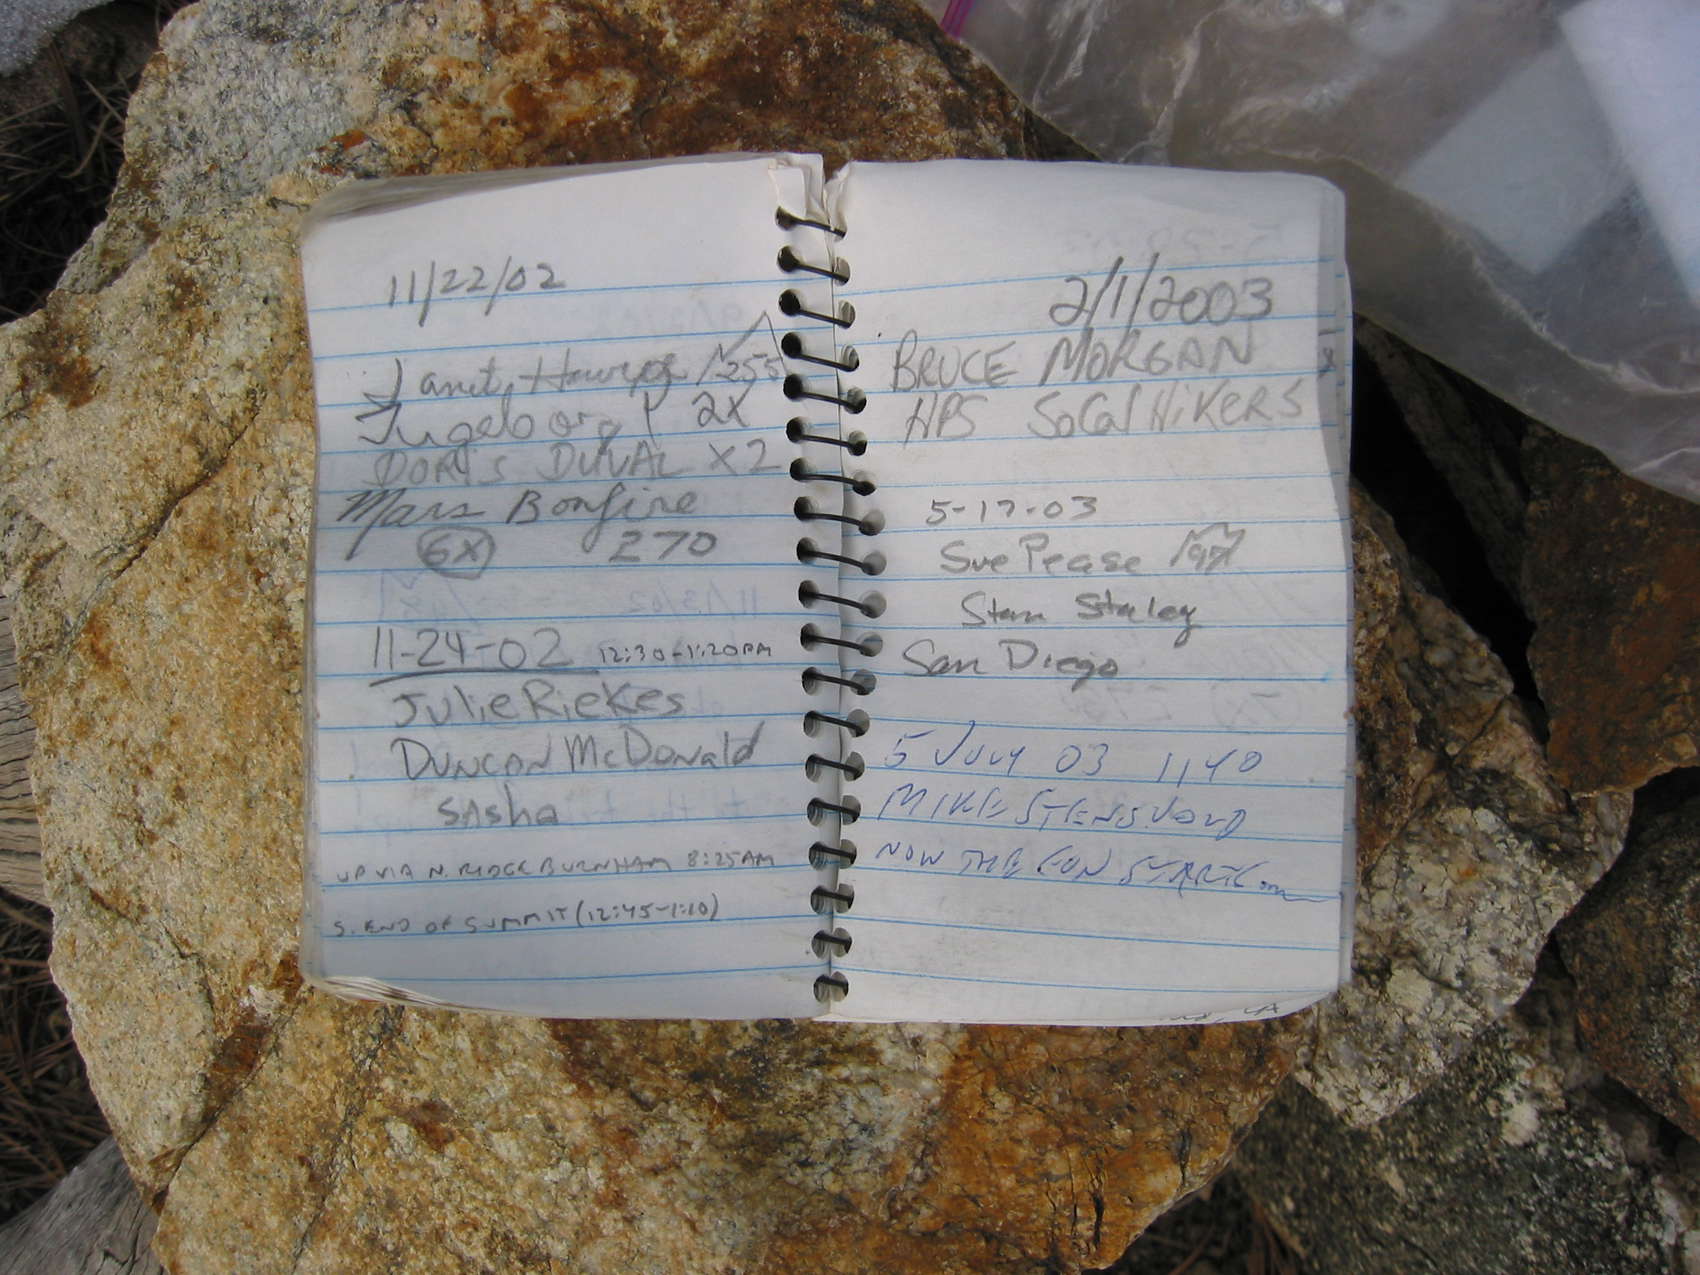 11/22/02
Janet 255
Ingeborg P 2X
DORIS DUVAL X2
Mars Bonfire
6X 270
11-24-02 12:30-1:20PM
Julie Riekes
DUNCAN McDonald
SAsha
UP VIA N. RIDGE BURNHAM 8:25AM
S. END OF SUMMIT (12:45-1:10)
2/1/2003
BRUCE MORGAN
HPS SoCal HiKERS
5-17-03
Sue Pease 9X
Stan Staley
San Diego
5 JULY 03 1140
MIKE STENSVOLD
NOW THE FUN STARTS